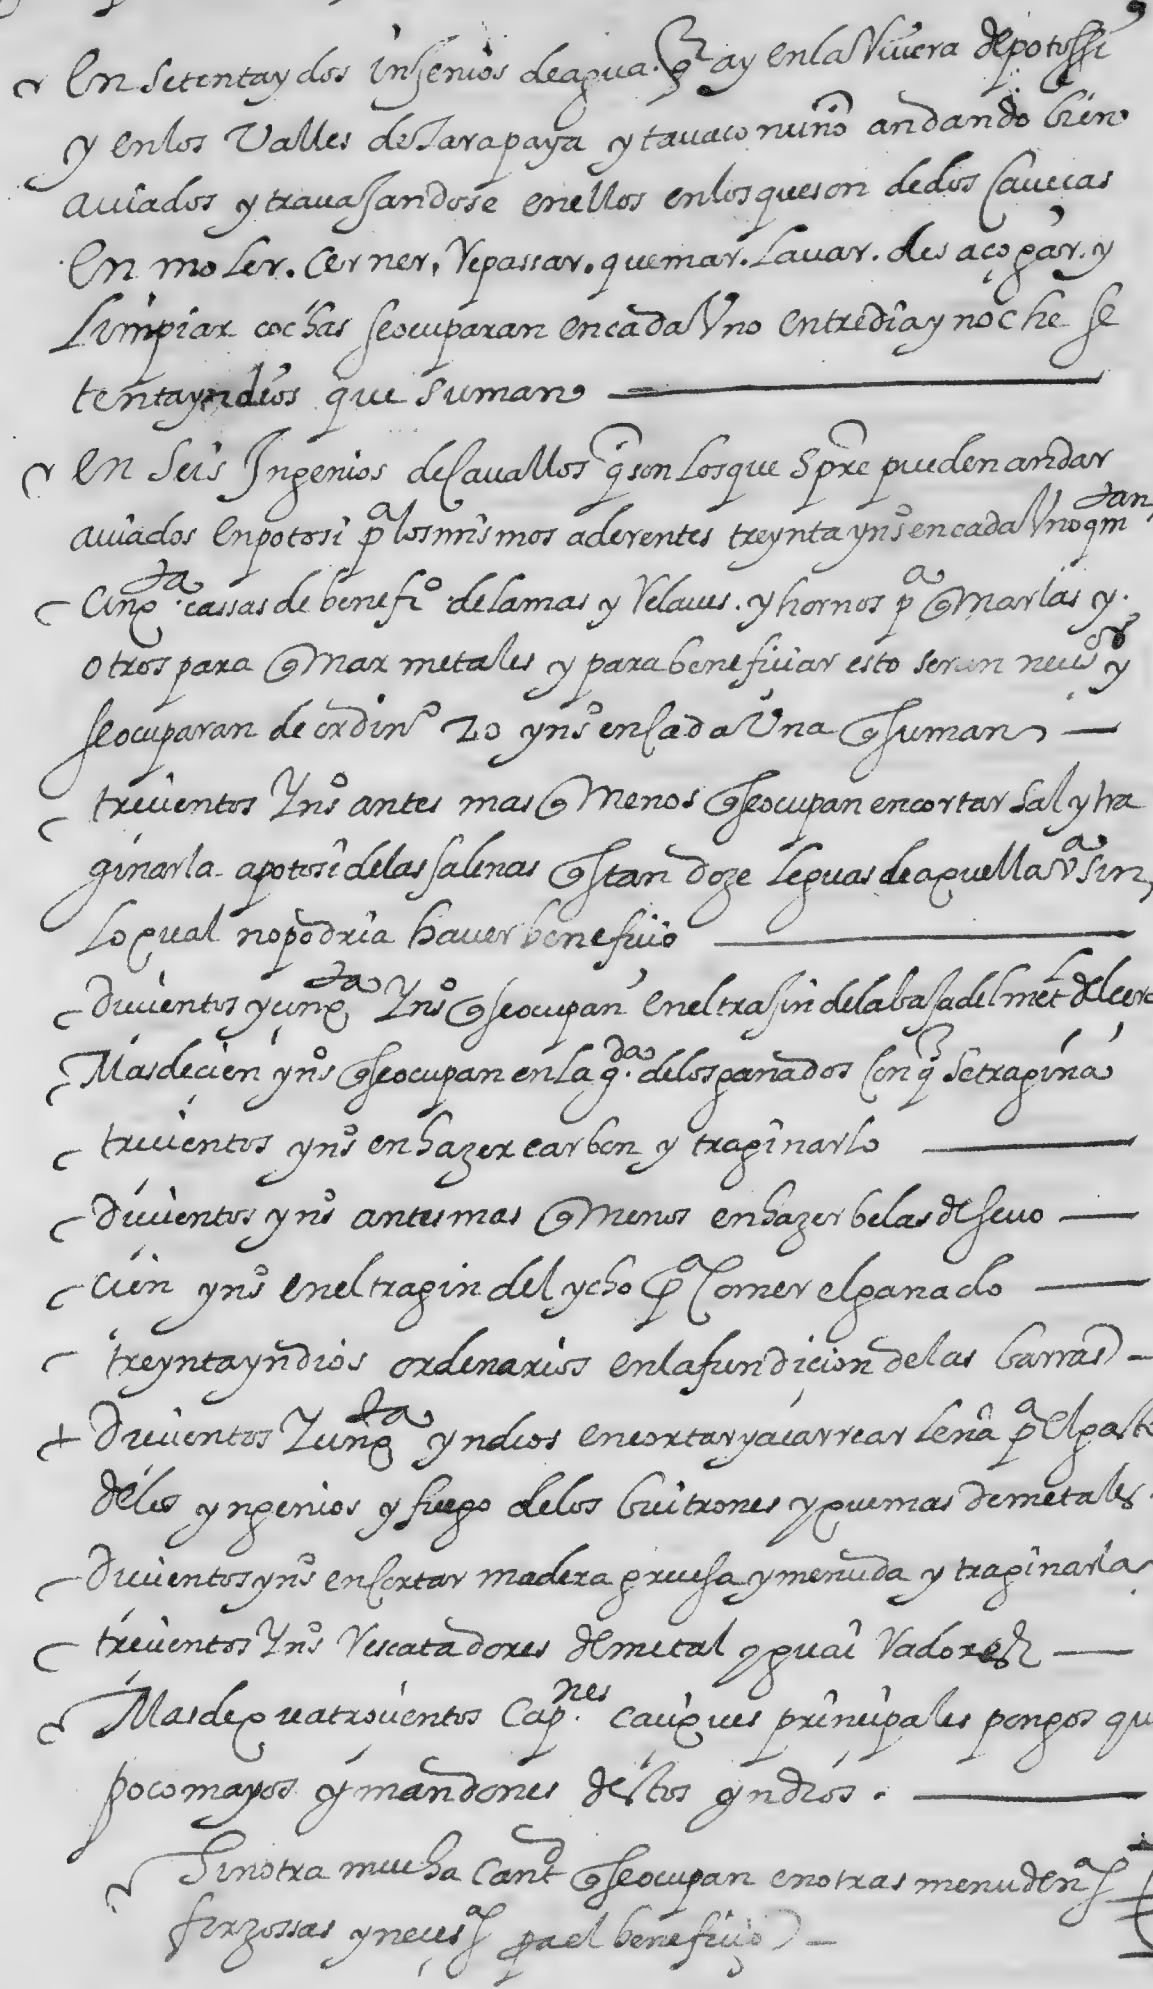 En setenta y dos insenios de agua. q ay en la Rivera de potossi
y en los Valles de Tarapaya y tauaco nuño andando bien
auiados y trauajandose en ellos en los que son de dos cauecas
En moler. Cerner, Repassar. quemar. Lauar. desaçogar. y
Limpiar cochas se ocuparan en cada Vno entre dia y noche se
tenta yndios que suman
En seis Ingenios de cauallos q̃ son los que spre pueden andar
auiados en potosi pª los mismos aderentes treynta ynºs en cada Vno
Cinqta cassas de benefiº de lamas y Relaues. y hornos pª qmarlas y.
otros para qmar metales y para beneficiar esto seran necesºs y
se ocuparan de ordinº 20 ynºs en cada Vna q suman
trecientos Ynºs antes mas q menos q se ocupan en cortar sal y tra
ginarla a potosi de las salinas q stan doze leguas de aquella Vª sin
Lo qual no podria hauer beneficio
Ducientos y cinqta Ynºs q se ocupan en el trasin de la baja del metl del cerro
Mas de cien ynºs q se ocupan en la gda de los ganados con q̃ se tragina
trecientos ynºs en hazer carbon y traginarlo
Ducientos ynºs antes mas q menos en hazer belas de seuo
Cien ynºs en el tragin del ycho pª comer el ganado
treynta yndios ordenarios en la fundicion de las barras
Ducientos Y cinqta yndios en cortar y acarrear leña pª el gasto
de los yngenios y fuego de los buitrones y quemas de metales.
Ducientos ynºs en cortar madera gruesa y menuda y traginarla
trecientos Ynºs Rescatadores de metal y guaiRadores
Mas de quatrocientos Capnes caciques principales pongos qui
pocomayos y mandones destos yndios.
Sin otra mucha Cantd q se ocupan en otras menudenªs
forzossas y necesªs pa el beneficio